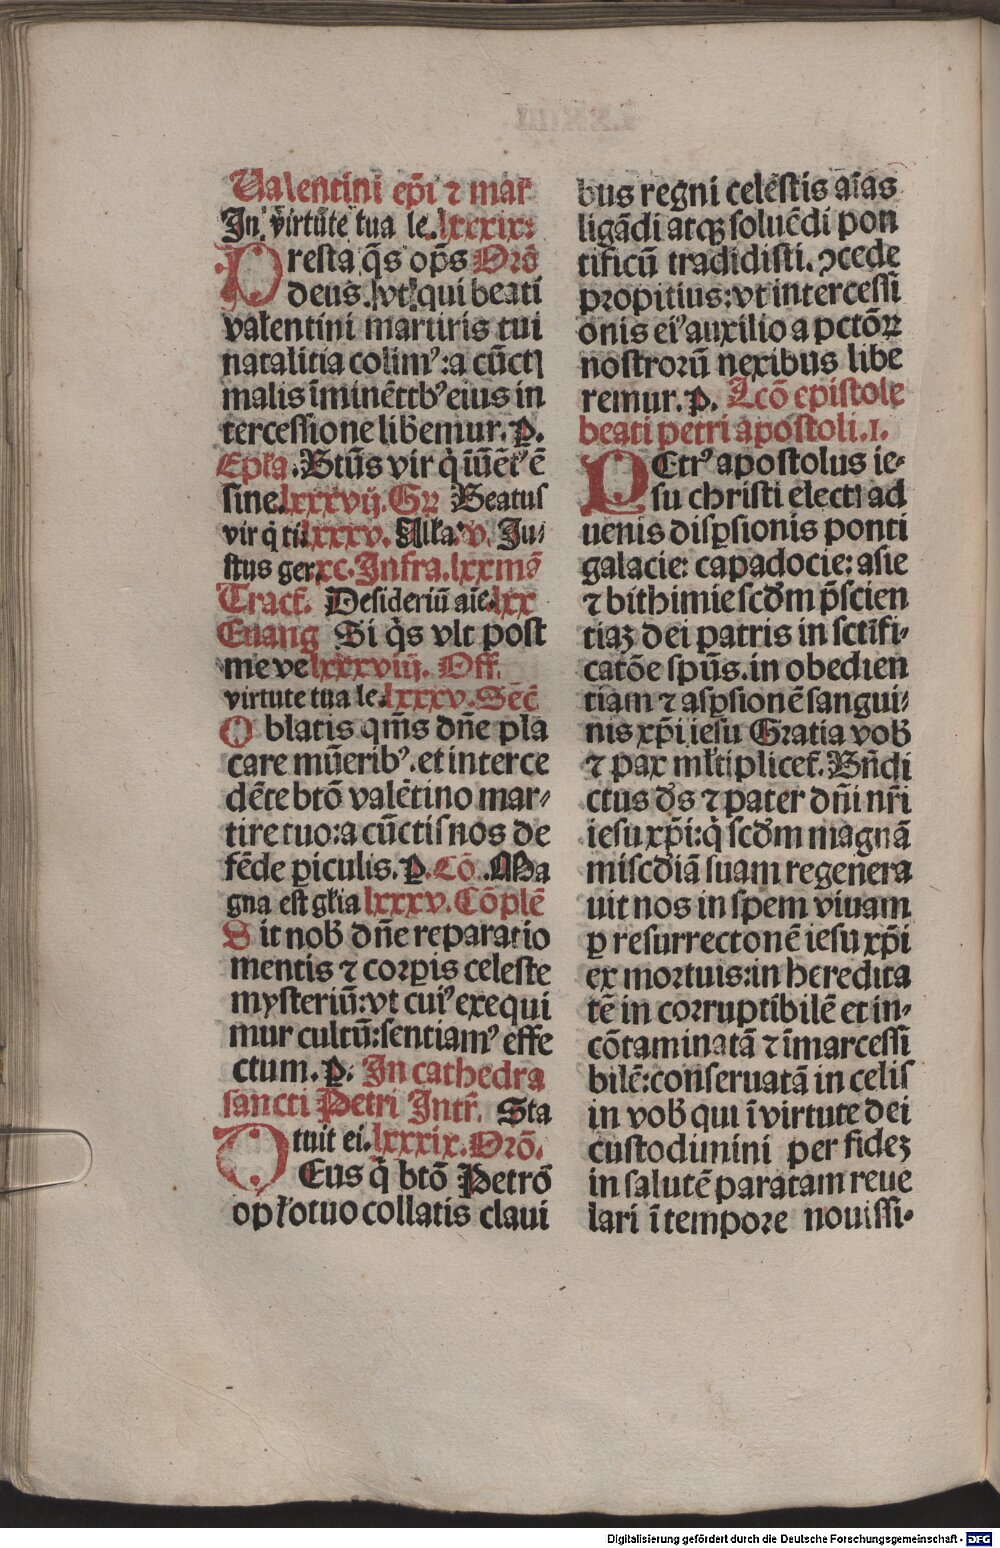 Ualentini ep̄i ⁊ mar̄
In virtute tua le.lxxxix:
Presta q̄s op̄s Orō
deus. vt qui beati
valentini martiris tui
natalitia colimꝰ:a cūctꝭ
malis īminētibꝰ eius in
tercessione liberemur. P.
Ep̄la. Btūs vir q̇ īuētꝰ ē
sine.lxxxvij. Gꝝ Beatus
vir q̇ ti.lxxxv. Alla. v. Ju-
stus ger.xc. Infra.lxxmā
Tract̄. Desideriū aīe.lxx
Euang Si q̄s vlt post
me ve lxxxviij. Off.
virtute tua le.lxxxv. Sec̄
Oblatis qm̄s dn̄e pla
care mūeribꝰ. et interce
dēte btō valētino mar-
tire tuo:a cūctis nos de
fēde ꝑiculis. P. Cō. Ma
gna est gl̄ia lxxxv. Cōplē
Sit nob̄ dn̄e reparatio
mentis ⁊ corꝑis celeste
mysteriū:vt cuiꝰ exequi
mur cultū:sentiamꝰ effe
ctum. P. In cathedra
sancti Petri Intr̄. Sta
tuit ei.lxxxix. Orō.
DEus q̇ btō Petrō
opl̄o tuo collatis claui
bus regni celestis aīas
ligādi atqꝫ soluēdi pon
tificū tradidisti. ꝯcede
propitius:vt intercessi
onis eiꝰ auxilio a pctōꝝ
nostrorū nexibus libe
remur. P. Lcō epistole
beati petri apostoli.1.
PEtrꝰ apostolus ie-
su christi electꝭ ad
uenis disꝑsionis ponti
galacie: capadocie: asie
⁊ bithimie scd̄m p̄scien
tiaꝫ dei patris in sctīfi-
catōe spūs. in obedien
tiam ⁊ asꝑsionē sangui-
nis xp̄i iesu Gratia vob̄
⁊ pax ml̄tiplicet̄. Bn̄di
ctus ds̄ ⁊ pater dn̄i nr̄i
iesu xp̄i:q̇ scd̄m magnā
mīscdiā suam regenera
uit nos in spem viuam
ꝑ resurrectonē iesu xp̄i
ex mortuis:in heredita
tē in corruptibilē et in-
cōtaminatā ⁊ īmarcessi
bilē:conseruatā in celis
in vob̄ qui ī virtute dei
custodimini per fideꝫ
in salutē paratam reue
lari ī tempore nouissi-
Digitalisierung gefördert durch die Deutsche Forschungsgemeinschaft - DFG